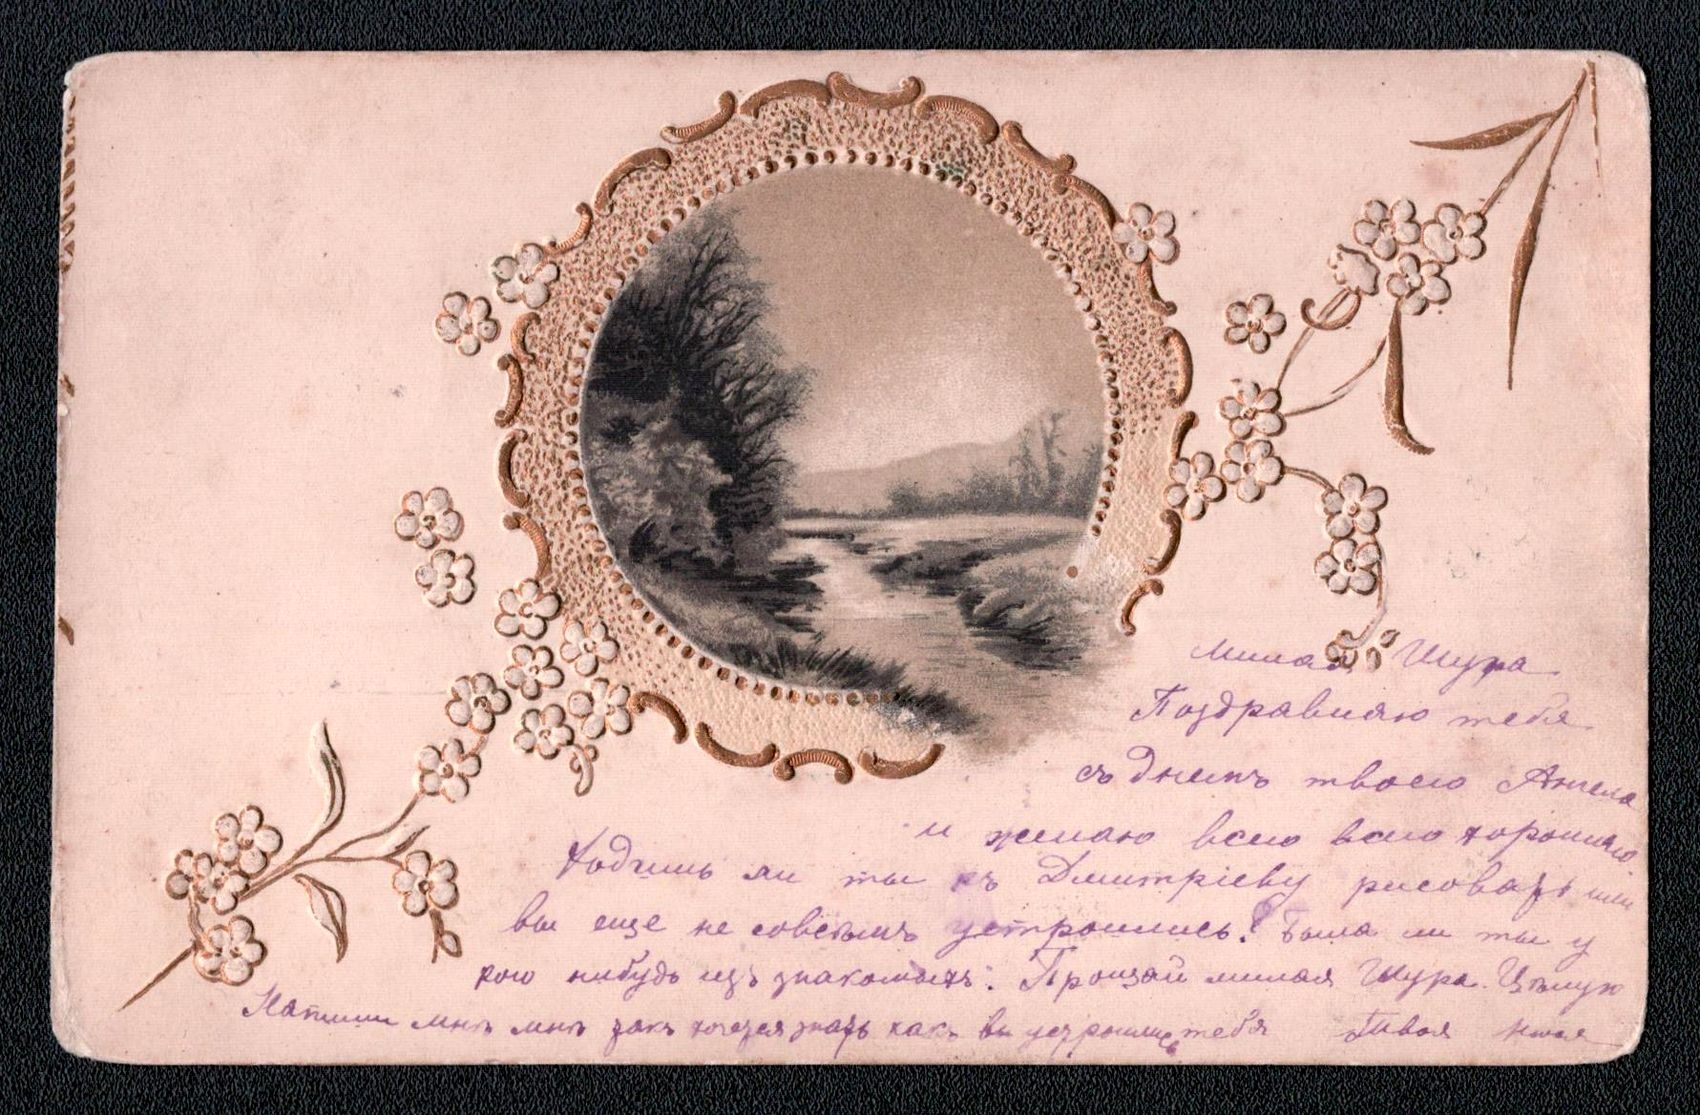 Милая Шура
Поздравляю тебя
съ днемъ твоего Ангела
и желаю всего всего хорошаго
Ходишь ли ты къ Дмитрiеву рисовать или
вы еще не совсѣмъ устроились? Была ли ты у
кого нибудь изъ знакомыхъ? Прощай милая Шура. Цѣлую
Напиши мнѣ мнѣ такъ хочется знать какъ вы устроились тебя Твоя